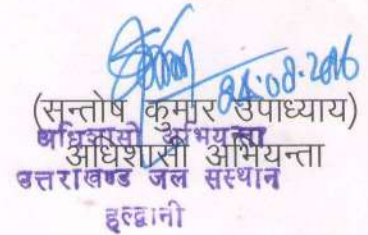 04.08.2016
(सन्तोष कुमार उपाध्याय)
अधिशासी अभियन्ता
अधिशासी अभियन्ता
उत्तराखण्ड जल संस्थान
हल्द्वानी